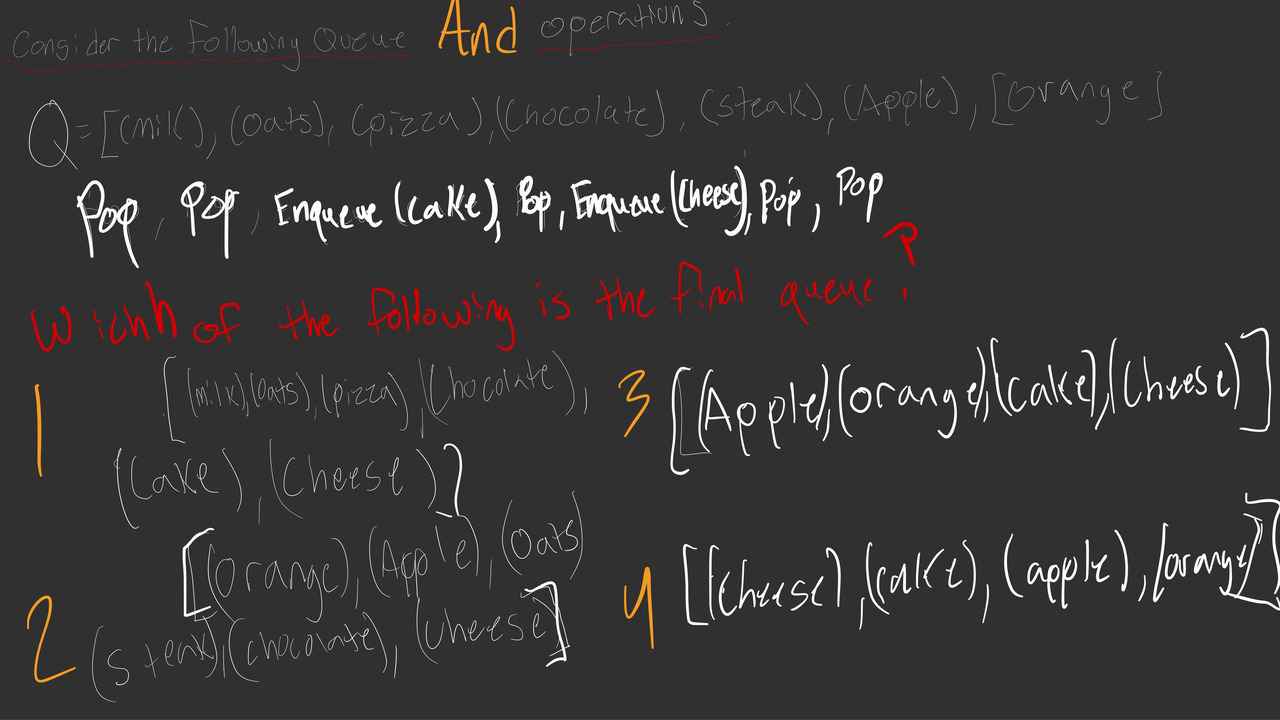 Consider the following Queue And operations.
Q=[(milk), (Oats), (pizza),(Chocolate], (steak), (Apple), [Orange]
Pop, Pop, Enqueue (Cake), Pop, Enqueue (Cheese), Pop, Pop
Wichh of the following is the final queue?
1 [(milk),(Oats),(pizza),(Chocolate),
(Cake), (Cheese)]
2 [(Orange), (Apple), (Oats)
(Steak),(chocolate), (Cheese)]
3 [(Apple),(Orange),(Cake),(Cheese)]
4 [(Cheese),(cake), (apple), (orange)]